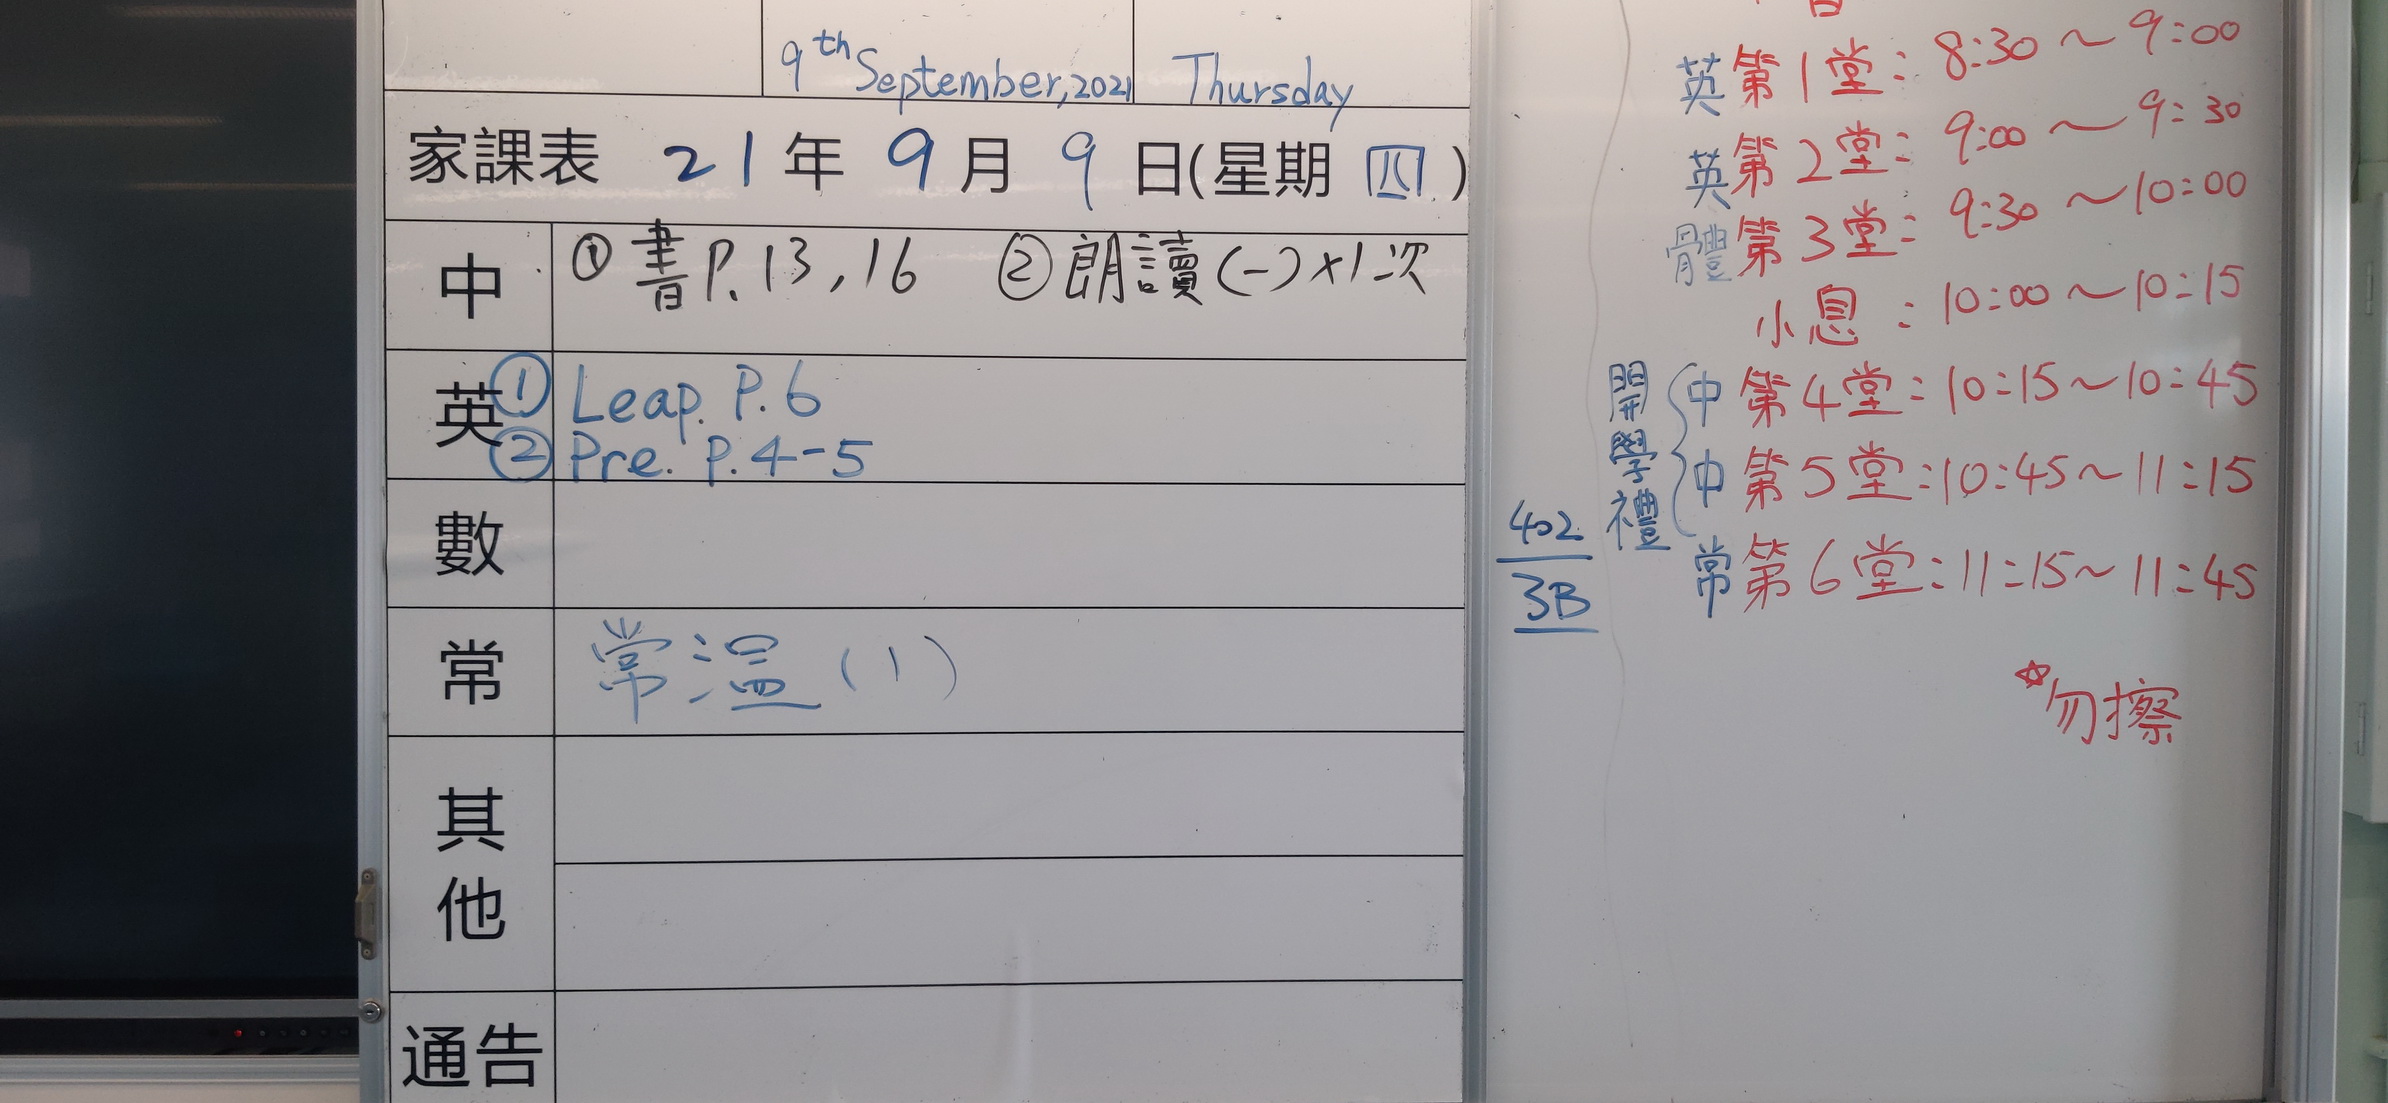 9th September, 2021 Thursday
家課表 21年 9月 9日(星期 四)
中 ① 書P.13,16 ② 朗讀(一)×1次
英 ① Leap. P.6
② Pre. P.4-5
數
常 常溫(1)
其他
通告
英 第1堂: 8:30～9:00
英 第2堂: 9:00～9:30
體 第3堂: 9:30～10:00
小息: 10:00～10:15
開學禮
中 第4堂: 10:15～10:45
中 第5堂: 10:45～11:15
常 第6堂: 11:15～11:45
402
3B
☆勿擦